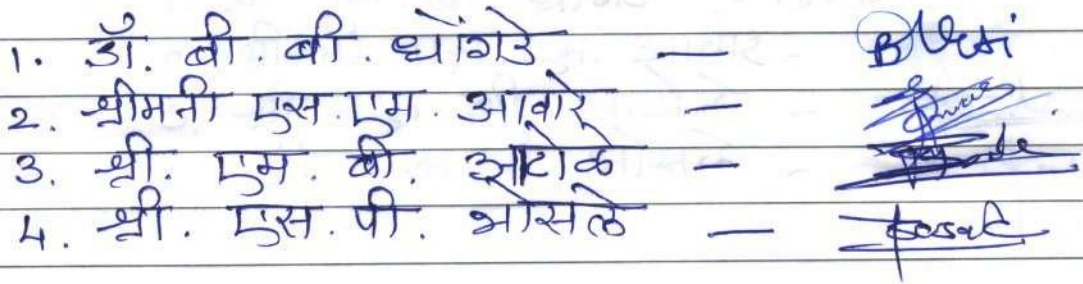 1. डॉ. बी. बी. धोंगडे —
2. श्रीमती एस. एम. आवारे —
3. श्री. एम. बी. आटोळे —
4. श्री. एस. पी. भोसले —